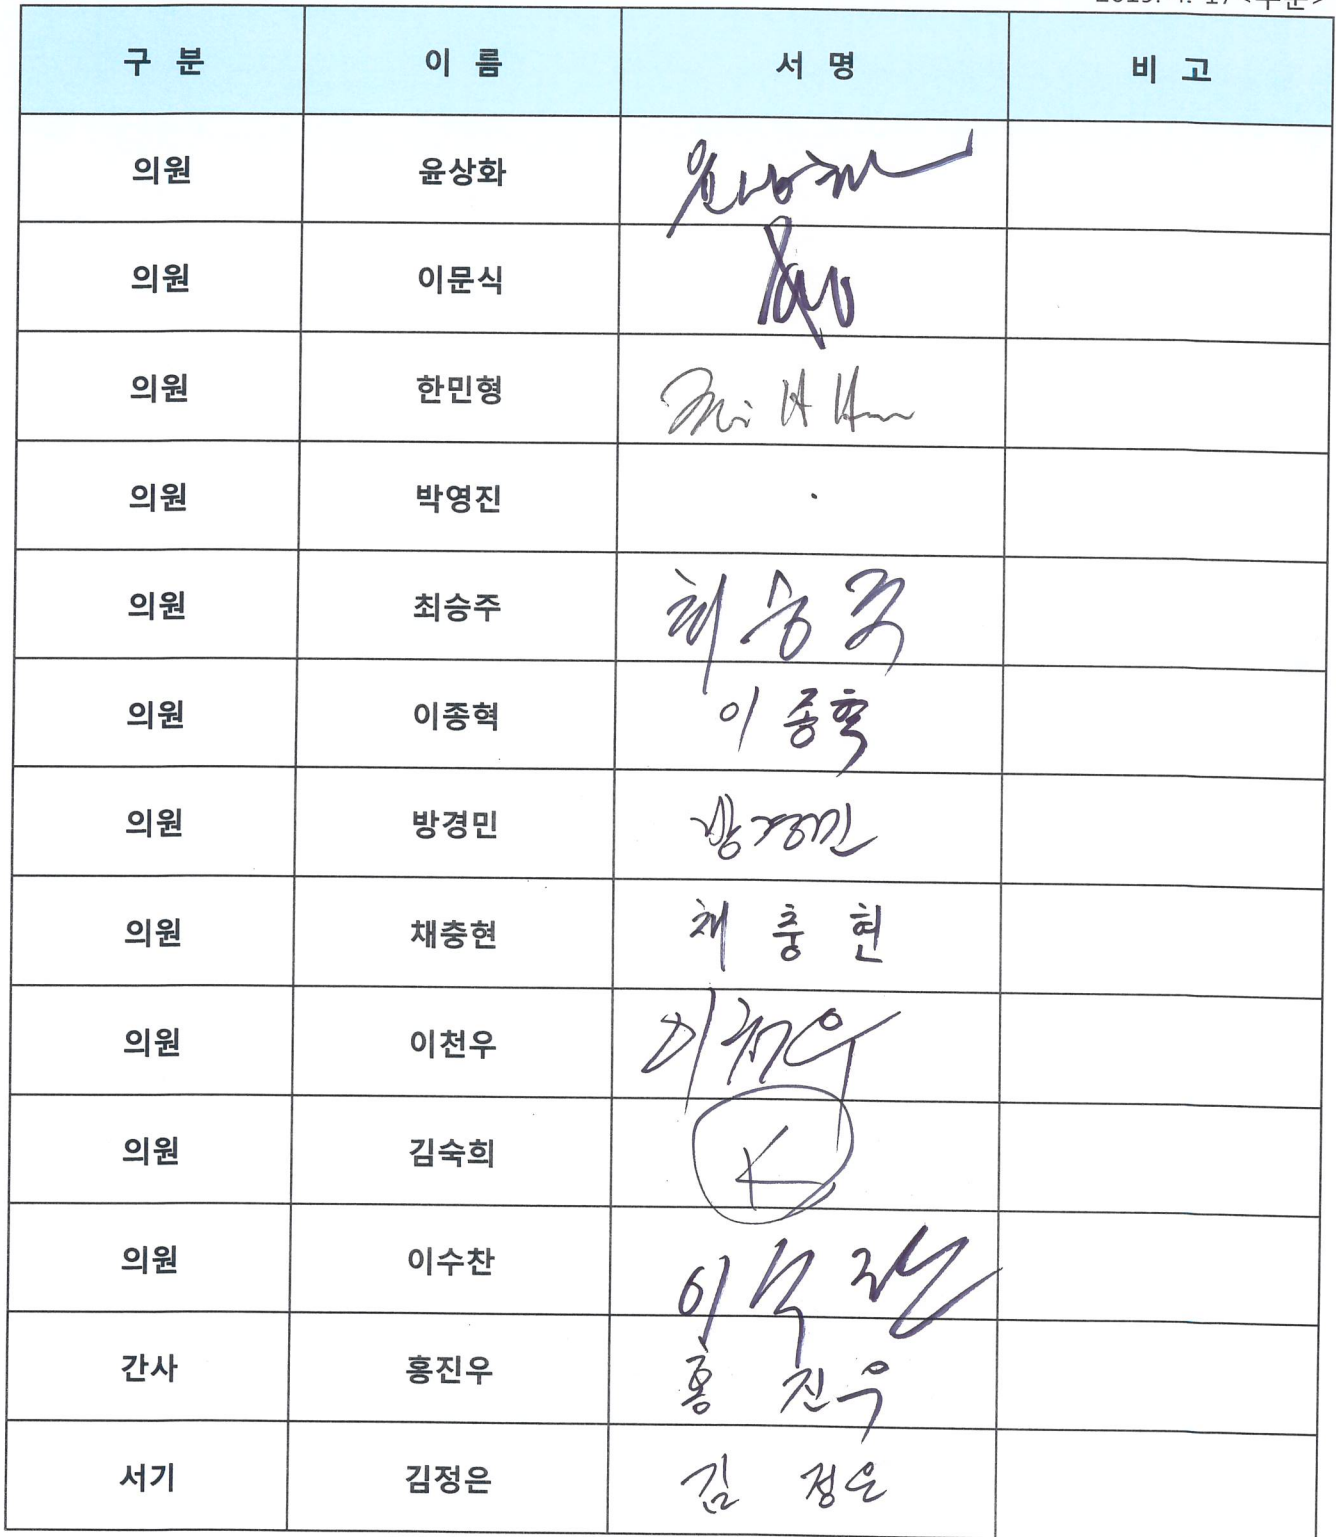 구 분 이 름 서 명 비 고
의원 윤상화
의원 이문식
의원 한민형
의원 박영진
의원 최승주 최승주
의원 이종혁 이종혁
의원 방경민 방경민
의원 채충현 채 충 현
의원 이천우 이천우
의원 김숙희 K
의원 이수찬 이수찬
간사 홍진우 홍 진우
서기 김정은 김 정은